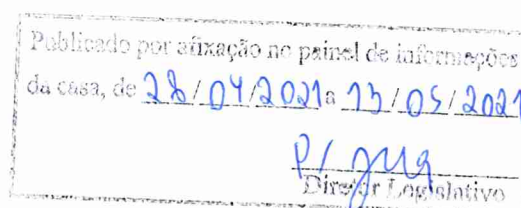 Publicado por afixação no painel de informações
da casa, de 28/04/2021 a 13/05/2021
P/
Diretor Legislativo